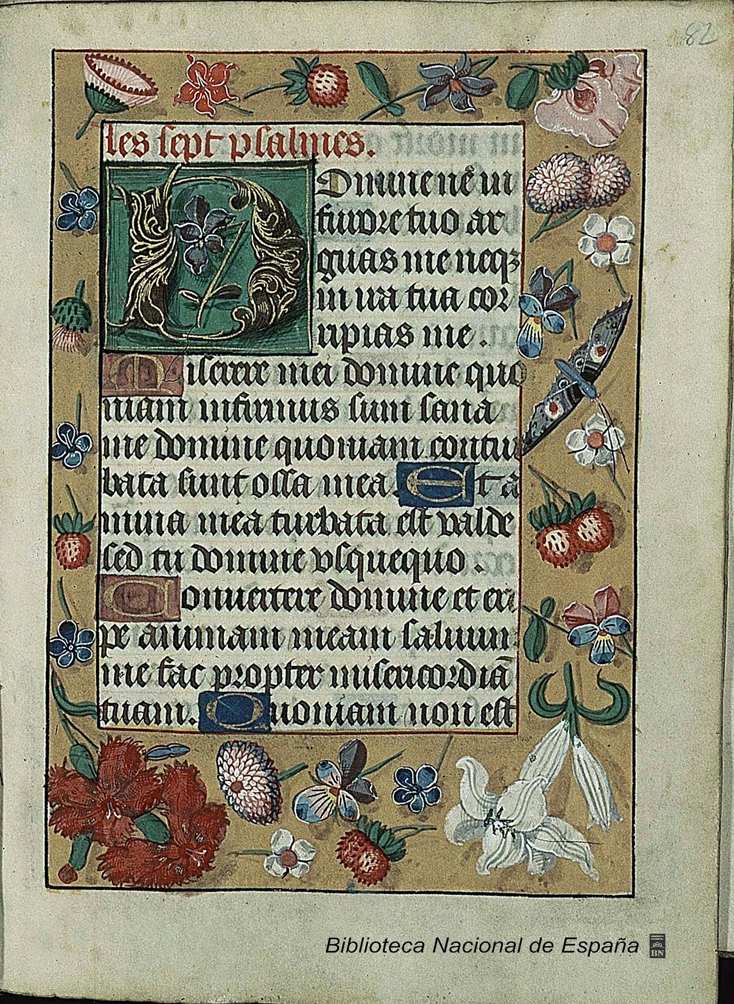 82
les sept psalmes.
Domine nē in
furore tuo ar
guas me neqꝫ
in ira tua cor
ripias me.
Miserere mei domine quo
niam infirmus sum sana
me domine quoniam contur
bata sunt ossa mea. Et a
nima mea turbata est valde
sed tu domine vsquequo.
Conuertere domine et eri
pe animam meam saluum
me fac propter misericordiā
tuam. Quoniam non est
Biblioteca Nacional de España
BN